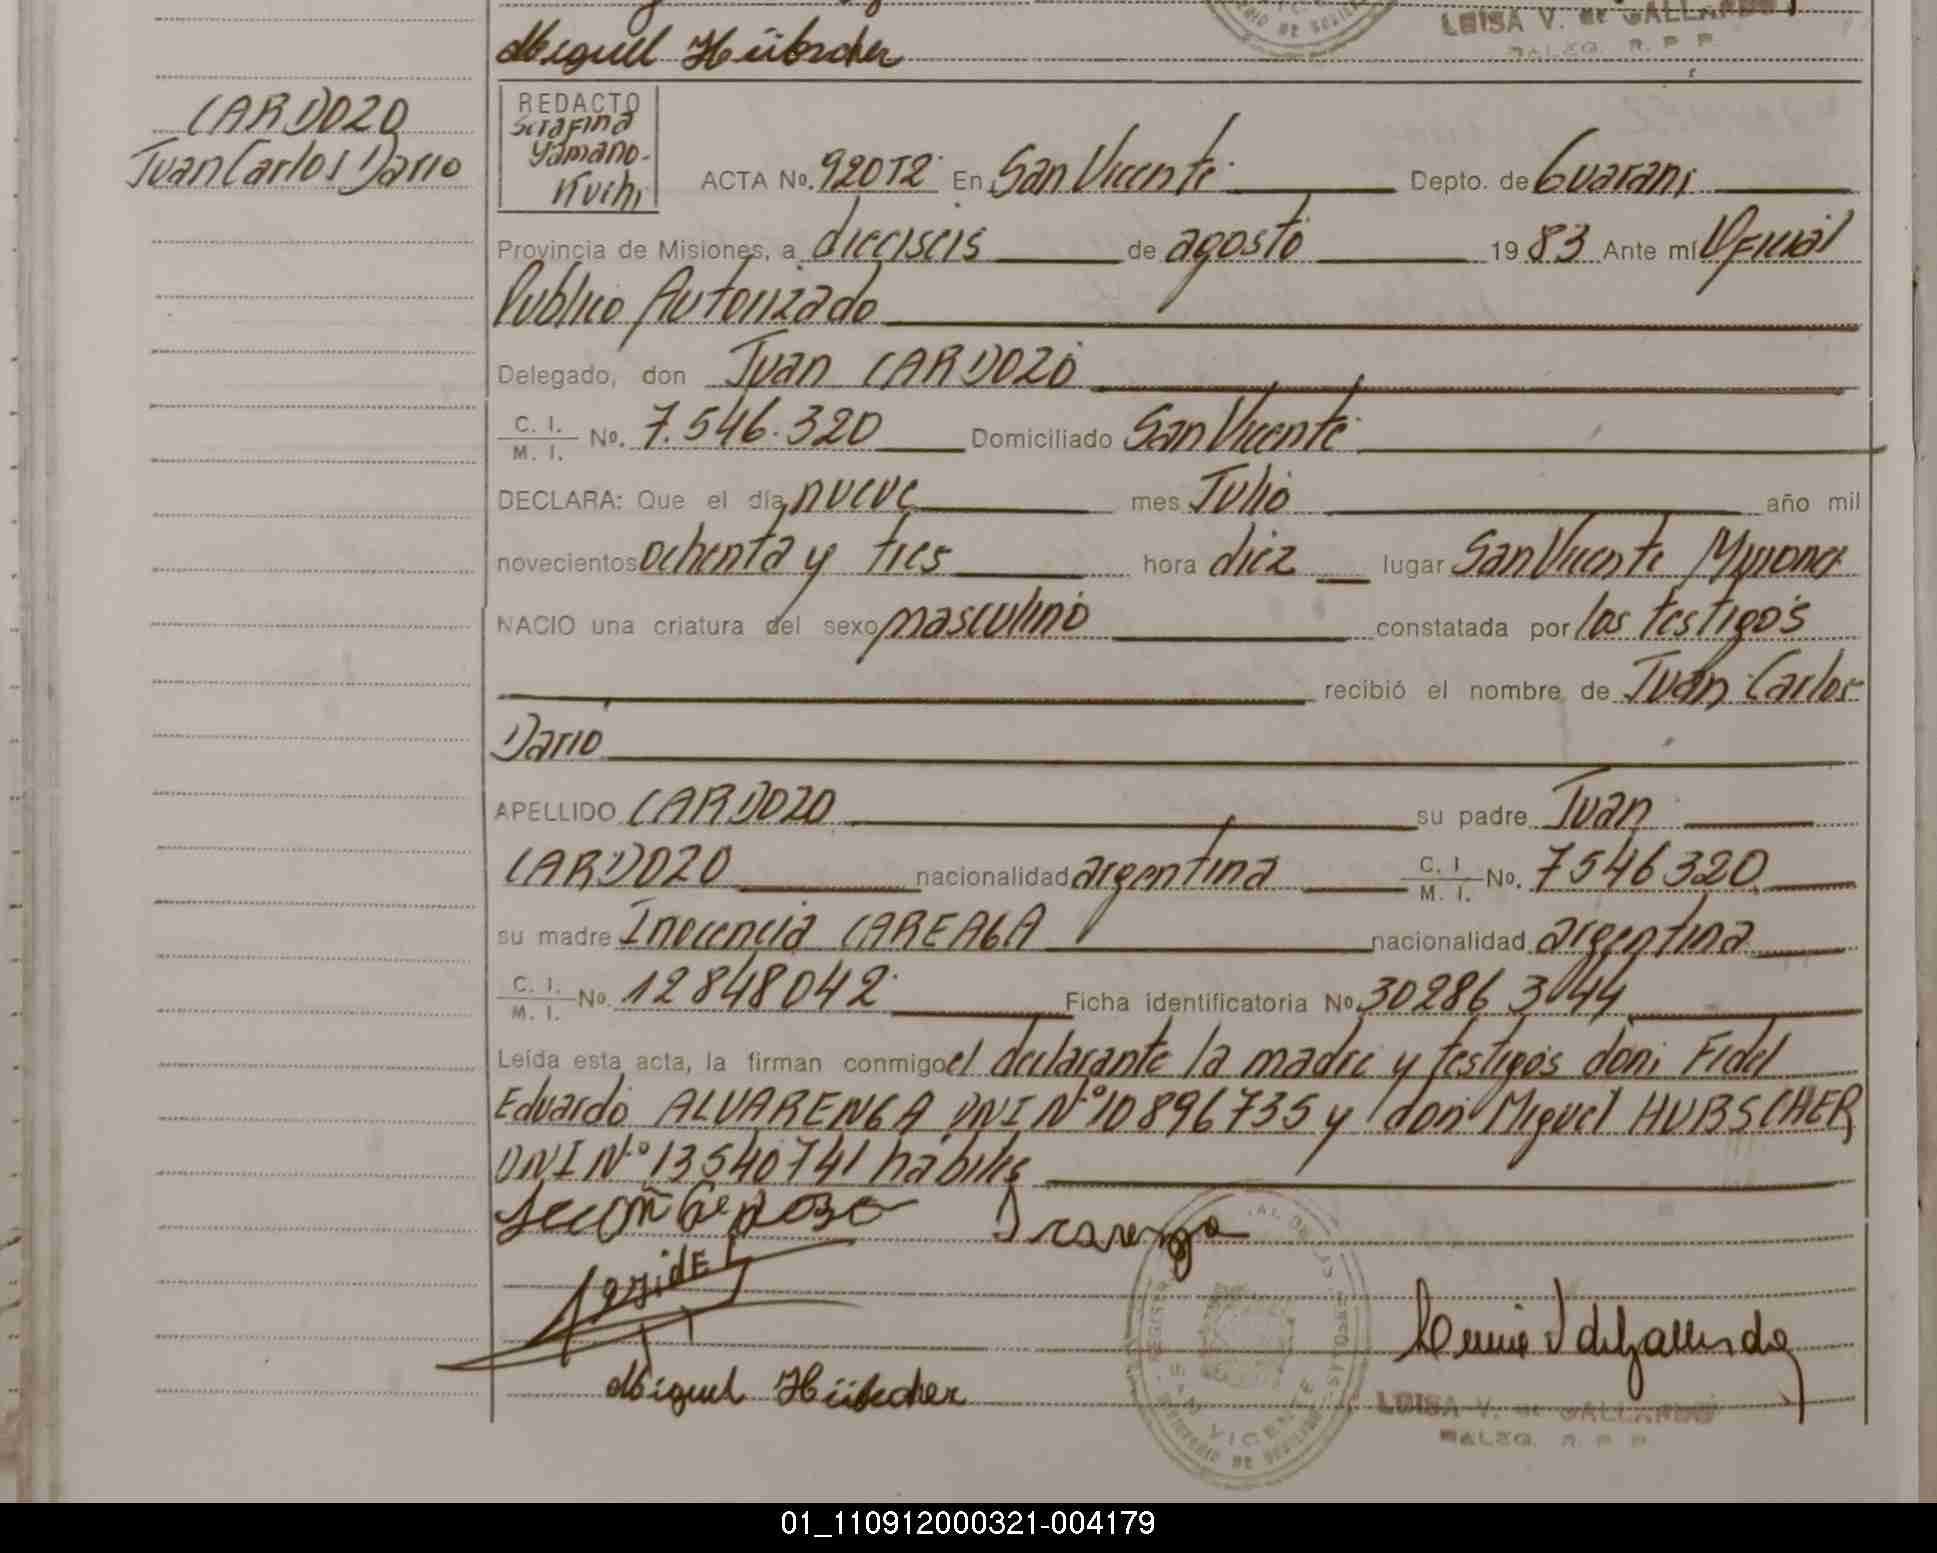 Miguel Hübscher
LUISA V. de GALLARDO
CARDOZO
Juan Carlos Dario
REDACTO
Serafina
Yamano-
Kuchi
ACTA No. 920T2 En San Vicente Depto. de Guarani
Provincia de Misiones, a dieciseis de agosto 1983 Ante mí Oficial
Publico Autorizado
Delegado, don Juan CARDOZO
C. I. / M. I. No. 7.546.320 Domiciliado San Vicente
DECLARA: Que el día nueve mes Julio año mil
novecientos ochenta y tres hora diez lugar San Vicente Misiones
NACIO una criatura del sexo masculino constatada por los testigos
recibió el nombre de Juan Carlos
Dario
APELLIDO CARDOZO su padre Juan
CARDOZO nacionalidad argentina C. I. / M. I. No. 7546320
su madre Inocencia CAREAGA nacionalidad argentina
C. I. / M. I. No. 12848042 Ficha identificatoria No. 30286344
Leída esta acta, la firman conmigo el declarante la madre y testigos don: Fidel
Eduardo ALVARENGA DNI N° 10896735 y don Miguel HUBSCHER
DNI N° 13540741 habiles
Miguel Hübscher
SAN VICENTE
LUISA V. de GALLARDO
01_110912000321-004179